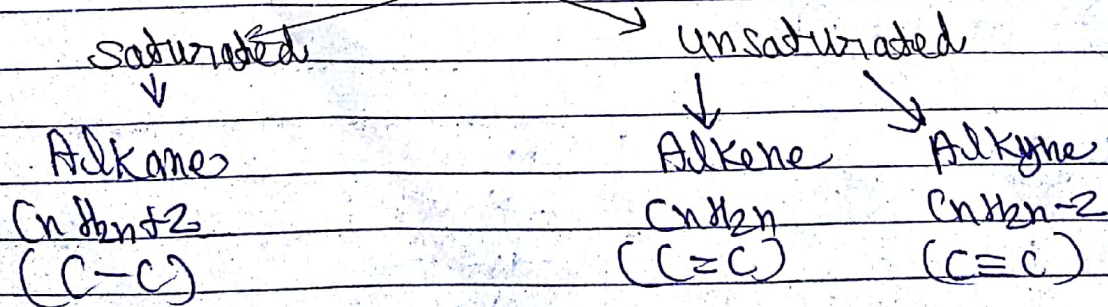 saturated unsaturated
Alkane Alkene Alkyne
CnH2n+2 CnH2n CnH2n-2
(C-C) (C=C) (C≡C)